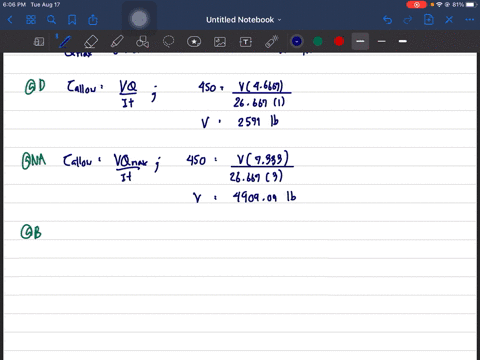 6:06 PM Tue Aug 17
81%
Untitled Notebook
@D τallow = VQ / It ; 450 = V(4.6667) / 26.667 (1)
V = 2571 lb
@NA τallow = VQmax / It ; 450 = V(7.333) / 26.667 (3)
V = 4909.09 lb
@B